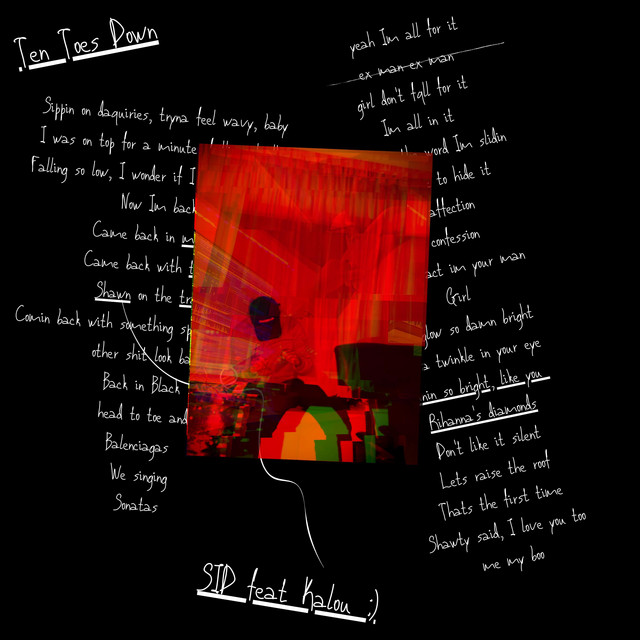 Ten Toes Down
Sippin on daquiries, tryna feel wavy, baby
I was on top for a minute
Falling so low, I wonder if I
Now Im back
Came back in
Came back with
Shawn on the
Comin back with something
other shit look
Back in Black
head to toe and
Balenciagas
We singing
Sonatas
yeah Im all for it
ex man ex man
girl don't fall for it
Im all in it
word Im slidin
to hide it
affection
confession
act im your man
Girl
glow so damn bright
a twinkle in your eye
so bright, like you
Rihanna's diamonds
Don't like it silent
Lets raise the roof
Thats the first time
Shawty said, I love you too
me my boo
SID feat Kalou :)